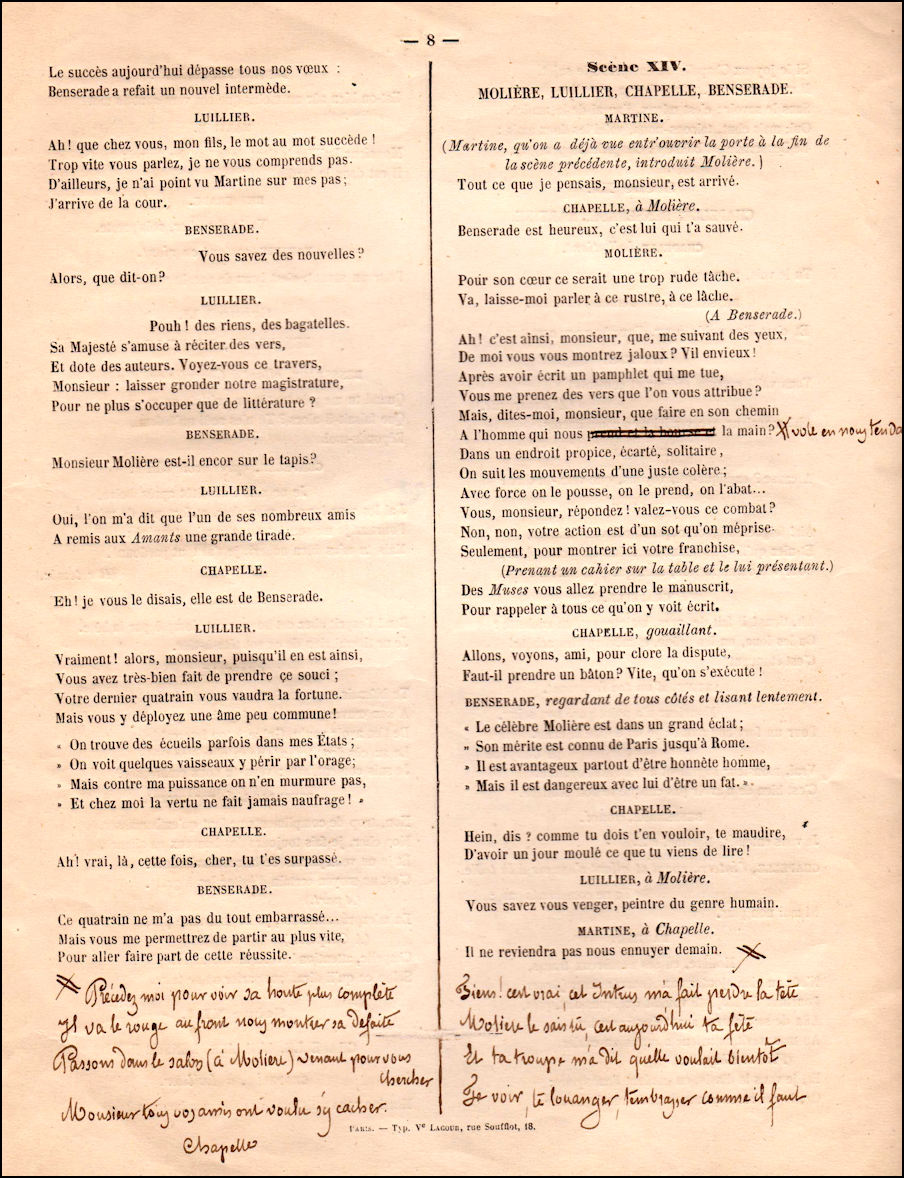 — 8 —
Le succès aujourd'hui dépasse tous nos vœux :
Benserade a refait un nouvel intermède.
LUILLIER.
Ah! que chez vous, mon fils, le mot au mot succède !
Trop vite vous parlez, je ne vous comprends pas.
D'ailleurs, je n'ai point vu Martine sur mes pas;
J'arrive de la cour.
BENSERADE.
Vous savez des nouvelles?
Alors, que dit-on?
LUILLIER.
Pouh! des riens, des bagatelles.
Sa Majesté s'amuse à réciter des vers,
Et dote des auteurs. Voyez-vous ce travers,
Monsieur : laisser gronder notre magistrature,
Pour ne plus s'occuper que de littérature ?
BENSERADE.
Monsieur Molière est-il encor sur le tapis?
LUILLIER.
Oui, l'on m'a dit que l'un de ses nombreux amis
A remis aux Amants une grande tirade.
CHAPELLE.
Eh! je vous le disais, elle est de Benserade.
LUILLIER.
Vraiment! alors, monsieur, puisqu'il en est ainsi,
Vous avez très-bien fait de prendre çe souci ;
Votre dernier quatrain vous vaudra la fortune.
Mais vous y déployez une âme peu commune!
« On trouve des écueils parfois dans mes États ;
» On voit quelques vaisseaux y périr par l'orage;
» Mais contre ma puissance on n'en murmure pas,
» Et chez moi la vertu ne fait jamais naufrage! »
CHAPELLE.
Ah! vrai, là, cette fois, cher, tu t'es surpassé.
BENSERADE.
Ce quatrain ne m'a pas du tout embarrassé...
Mais vous me permettrez de partir au plus vite,
Pour aller faire part de cette réussite.
Précédez moi pour voir sa honte plus complète
Il va le rouge au front nous montrer sa defaite
Passons dans le salon (à Moliere) venant pour vous
chercher
Monsieur tous vos amis ont voulu s'y cacher.
Chapelle
Scène XIV.
MOLIÈRE, LUILLIER, CHAPELLE, BENSERADE.
MARTINE.
(Martine, qu'on a déjà vue entr'ouvrir la porte à la fin de
la scène précédente, introduit Molière.)
Tout ce que je pensais, monsieur, est arrivé.
CHAPELLE, à Molière.
Benserade est heureux, c'est lui qui t'a sauvé.
MOLIÈRE.
Pour son cœur ce serait une trop rude tâche.
Va, laisse-moi parler à ce rustre, à ce lâche.
(A Benserade.)
Ah! c'est ainsi, monsieur, que, me suivant des yeux,
De moi vous vous montrez jaloux? Vil envieux!
Après avoir écrit un pamphlet qui me tue,
Vous me prenez des vers que l'on vous attribue?
Mais, dites-moi, monsieur, que faire en son chemin
A l'homme qui nous prend et la bourse et la main? vole en nous tenda
Dans un endroit propice, écarté, solitaire,
On suit les mouvements d'une juste colère;
Avec force on le pousse, on le prend, on l'abat...
Vous, monsieur, répondez! valez-vous ce combat?
Non, non, votre action est d'un sot qu'on méprise.
Seulement, pour montrer ici votre franchise,
(Prenant un cahier sur la table et le lui présentant.)
Des Muses vous allez prendre le manuscrit,
Pour rappeler à tous ce qu'on y voit écrit.
CHAPELLE, gouaillant.
Allons, voyons, ami, pour clore la dispute,
Faut-il prendre un bâton? Vite, qu'on s'exécute !
BENSERADE, regardant de tous côtés et lisant lentement.
« Le célèbre Molière est dans un grand éclat;
» Son mérite est connu de Paris jusqu'à Rome.
» Il est avantageux partout d'être honnête homme,
» Mais il est dangereux avec lui d'être un fat. ».
CHAPELLE.
Hein, dis ? comme tu dois t'en vouloir, te maudire,
D'avoir un jour moulé ce que tu viens de lire!
LUILLIER, à Molière.
Vous savez vous venger, peintre du genre humain.
MARTINE, à Chapelle.
Il ne reviendra pas nous ennuyer demain.
Tiens! c'est vrai, cet Intrus m'a fait perdre la tête
Moliere le sais tu, c'est aujourd'hui ta fête
Et ta troupe m'a dit qu'elle voulait bientôt
Te voir, te louanger, t'embrasser comme il faut
PARIS. — Typ. Ve LACOUR, rue Soufflot, 18.